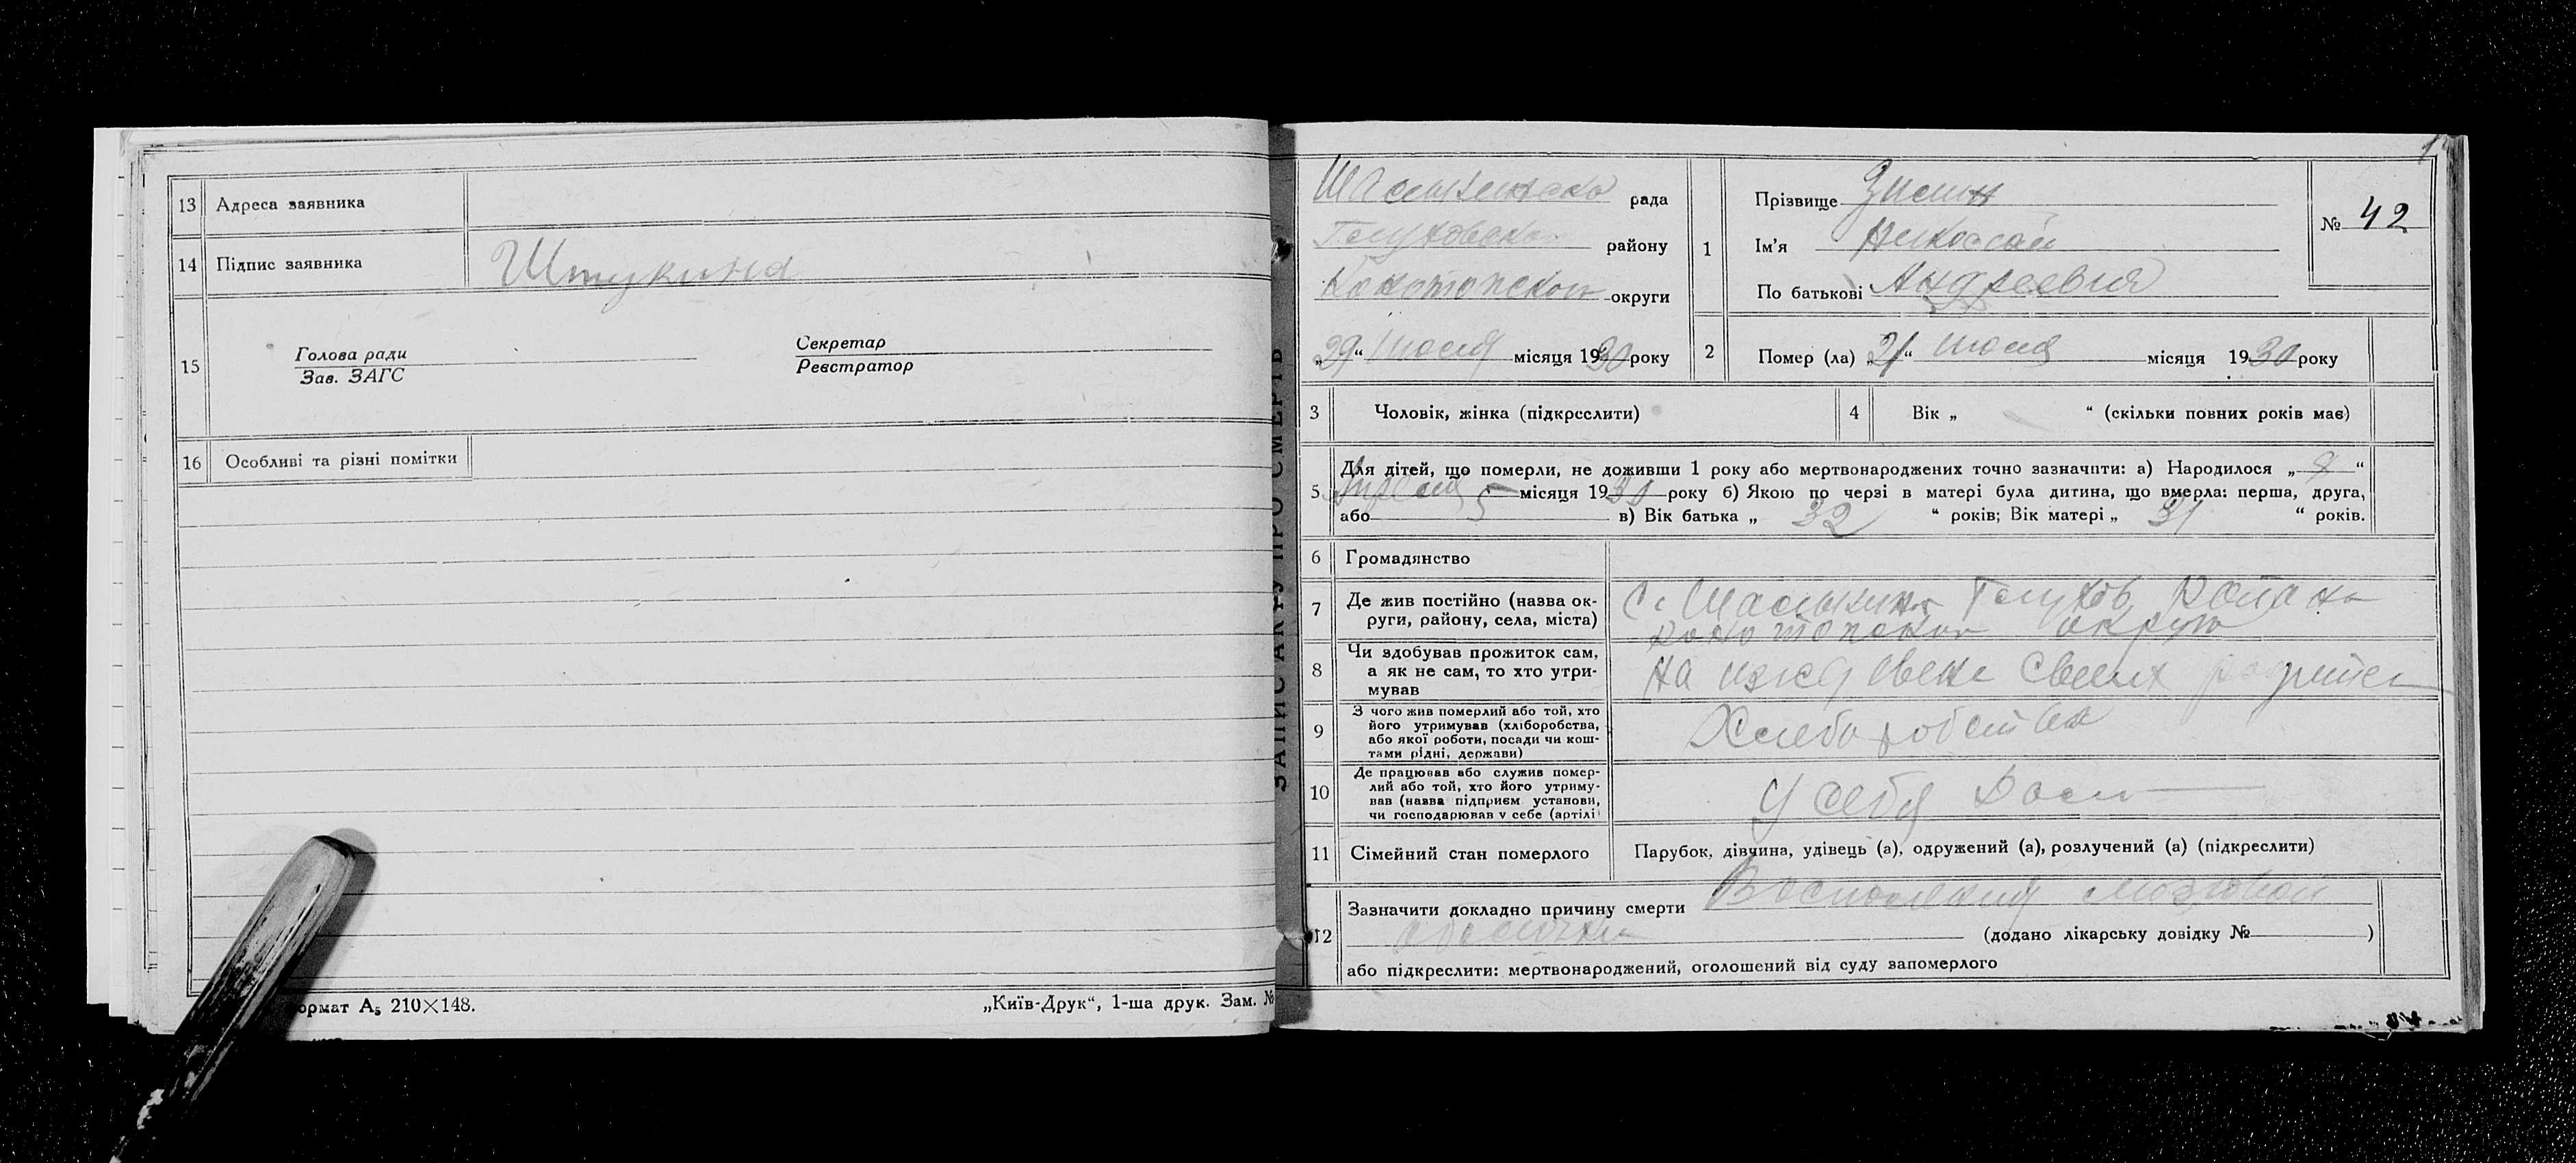 13 Адреса заявника
14 Підпис заявника Штукина
15 Голова ради
Зав. ЗАГС
Секретар
Реєстратор
16 Особливі та різні помітки
формат А₅ 210×148.
„Київ-Друк“, 1-ша друк. Зам. №
ЗАПИС АКТУ ПРО СМЕРТЬ
рада
Глуховско району
Конотопской округи
„29“ июля місяця 1930 року
1 Прізвище
Ім’я Николай
По батькові Андреевич
№ 42
2 Помер (ла) „21“ июля місяця 1930 року
3 Чоловік, жінка (підкреслити)
4 Вік „ “ (скільки повних років має)
5 Для дітей, що померли, не доживши 1 року або мертвонароджених точно зазначити: а) Народилося „ “
Апреля місяця 19 року б) Якою по черзі в матері була дитина, що вмерла: перша, друга,
або 5 в) Вік батька „ 32 “ років; Вік матері „ 31 “ років.
6 Громадянство
7 Де жив постійно (назва ок-
руги, району, села, міста)
С. Глухов
Конотопской округи
8 Чи здобував прожиток сам,
а як не сам, то хто утри-
мував
на своих родител
9 З чого жив померлий або той, хто
його утримував (хліборобства,
або якої роботи, посади чи кош-
тами рідні, держави)
Хлеборобства
10 Де працював або служив помер-
лий або той, хто його утриму-
вав (назва підприєм установи,
чи господарював у себе (артілі
У себя
11 Сімейний стан померлого Парубок, дівчина, удівець (а), одружений (а), розлучений (а) (підкреслити)
12 Зазначити докладно причину смерти Воспаления мозговой
оболочки (додано лікарську довідку № )
або підкреслити: мертвонароджений, оголошений від суду запомерлого